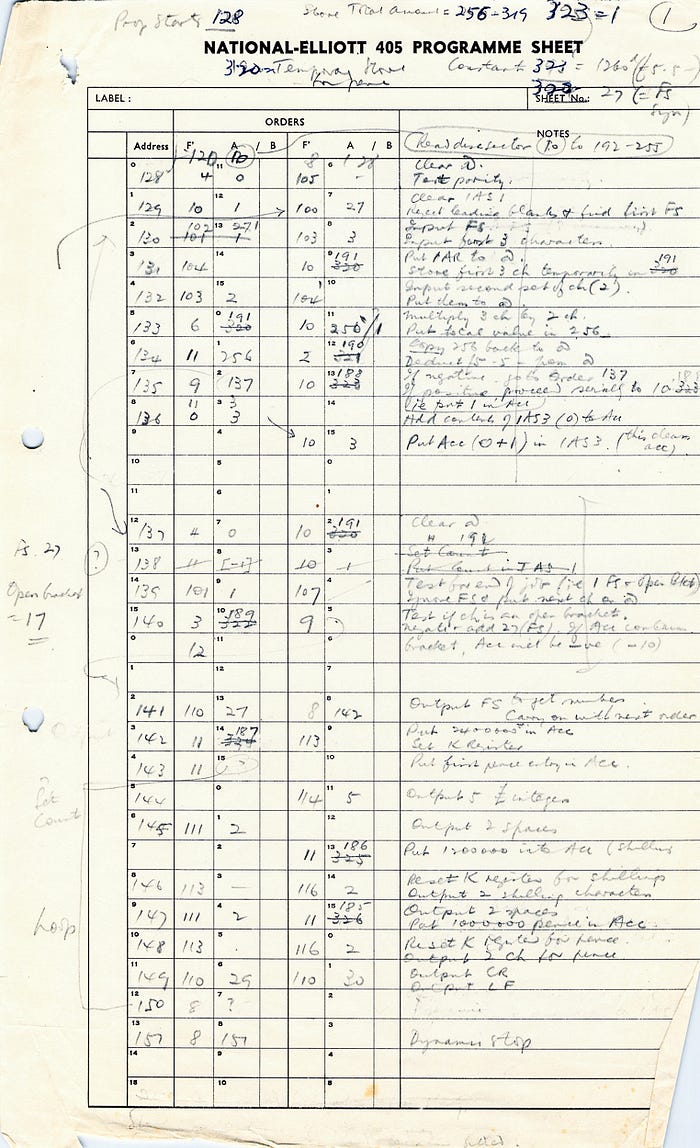 Prog Starts 128
Store Trial Amount = 256-319 323 = 1 (1)
NATIONAL-ELLIOTT 405 PROGRAMME SHEET
Temporary Store Constant 323 = 1260
for pence
LABEL : SHEET No.: 27 (= FS
ORDERS NOTES
Address F' A / B F' A / B
(Read disc sector 10 to 192-255
120 10 8 128
128 4 0 105 - Clear a.
Test parity.
129 10 1 100 27 Clear IAS 1
Reject leading blanks & find first FS
102 271
130 101 1 103 3 Input FS
Input first 3 characters
131 104 10 191 320 Put IAR to a.
Store first 3 ch temporarily in 191 320
132 103 2 104 Input second set of ch (2).
Put them to a.
133 6 191 320 10 256 /1 Multiply 3 ch by 2 ch.
Put total value in 256
134 11 256 2 190 321 Copy 256 back to a
Deduct 15-5- from a
135 9 137 10 188 323 If negative goto order 137
If positive proceed serially to 10 323
11 3 (ie put 1 in Acc)
136 0 3 Add contents of IAS3 (0) to Acc
10 3 Put Acc (0+1) in IAS3 (this clears acc)
137 4 0 10 191 320 Clear a
" 191
138 4 [-1] 10 1 Set Count
Put Count in IAS 1
139 101 1 107 Test for end of job (ie 1 FS + open Bkt)
Ignore FS & put next ch in a
140 3 189 322 9 Test if ch is an open bracket.
Negate & add 27 (FS). If Acc contains
12 bracket, Acc will be -ve (-10)
Fs. 27
(?)
Open bracket
= 17
141 110 27 8 142 Output FS to get numbers
Carry on with next order
142 11 187 324 113 Put 2400000 in Acc
Set K Register
143 11 ? Put first pence entry in Acc.
144 114 5 Output 5 £ integers
? Set Count
145 111 2 Output 2 spaces
11 186 325 Put 1200000 into Acc (Shillings
146 113 - 116 2 Reset K register for shillings
Output 2 shilling characters
Loop
147 111 2 11 185 326 Output 2 spaces
Put 1000000 pence in Acc.
148 113 . 116 2 Reset K register for pence.
Output 2 ch for pence
149 110 29 110 30 Output CR
Output LF
150 8 ?
151 8 151 Dynamic Stop